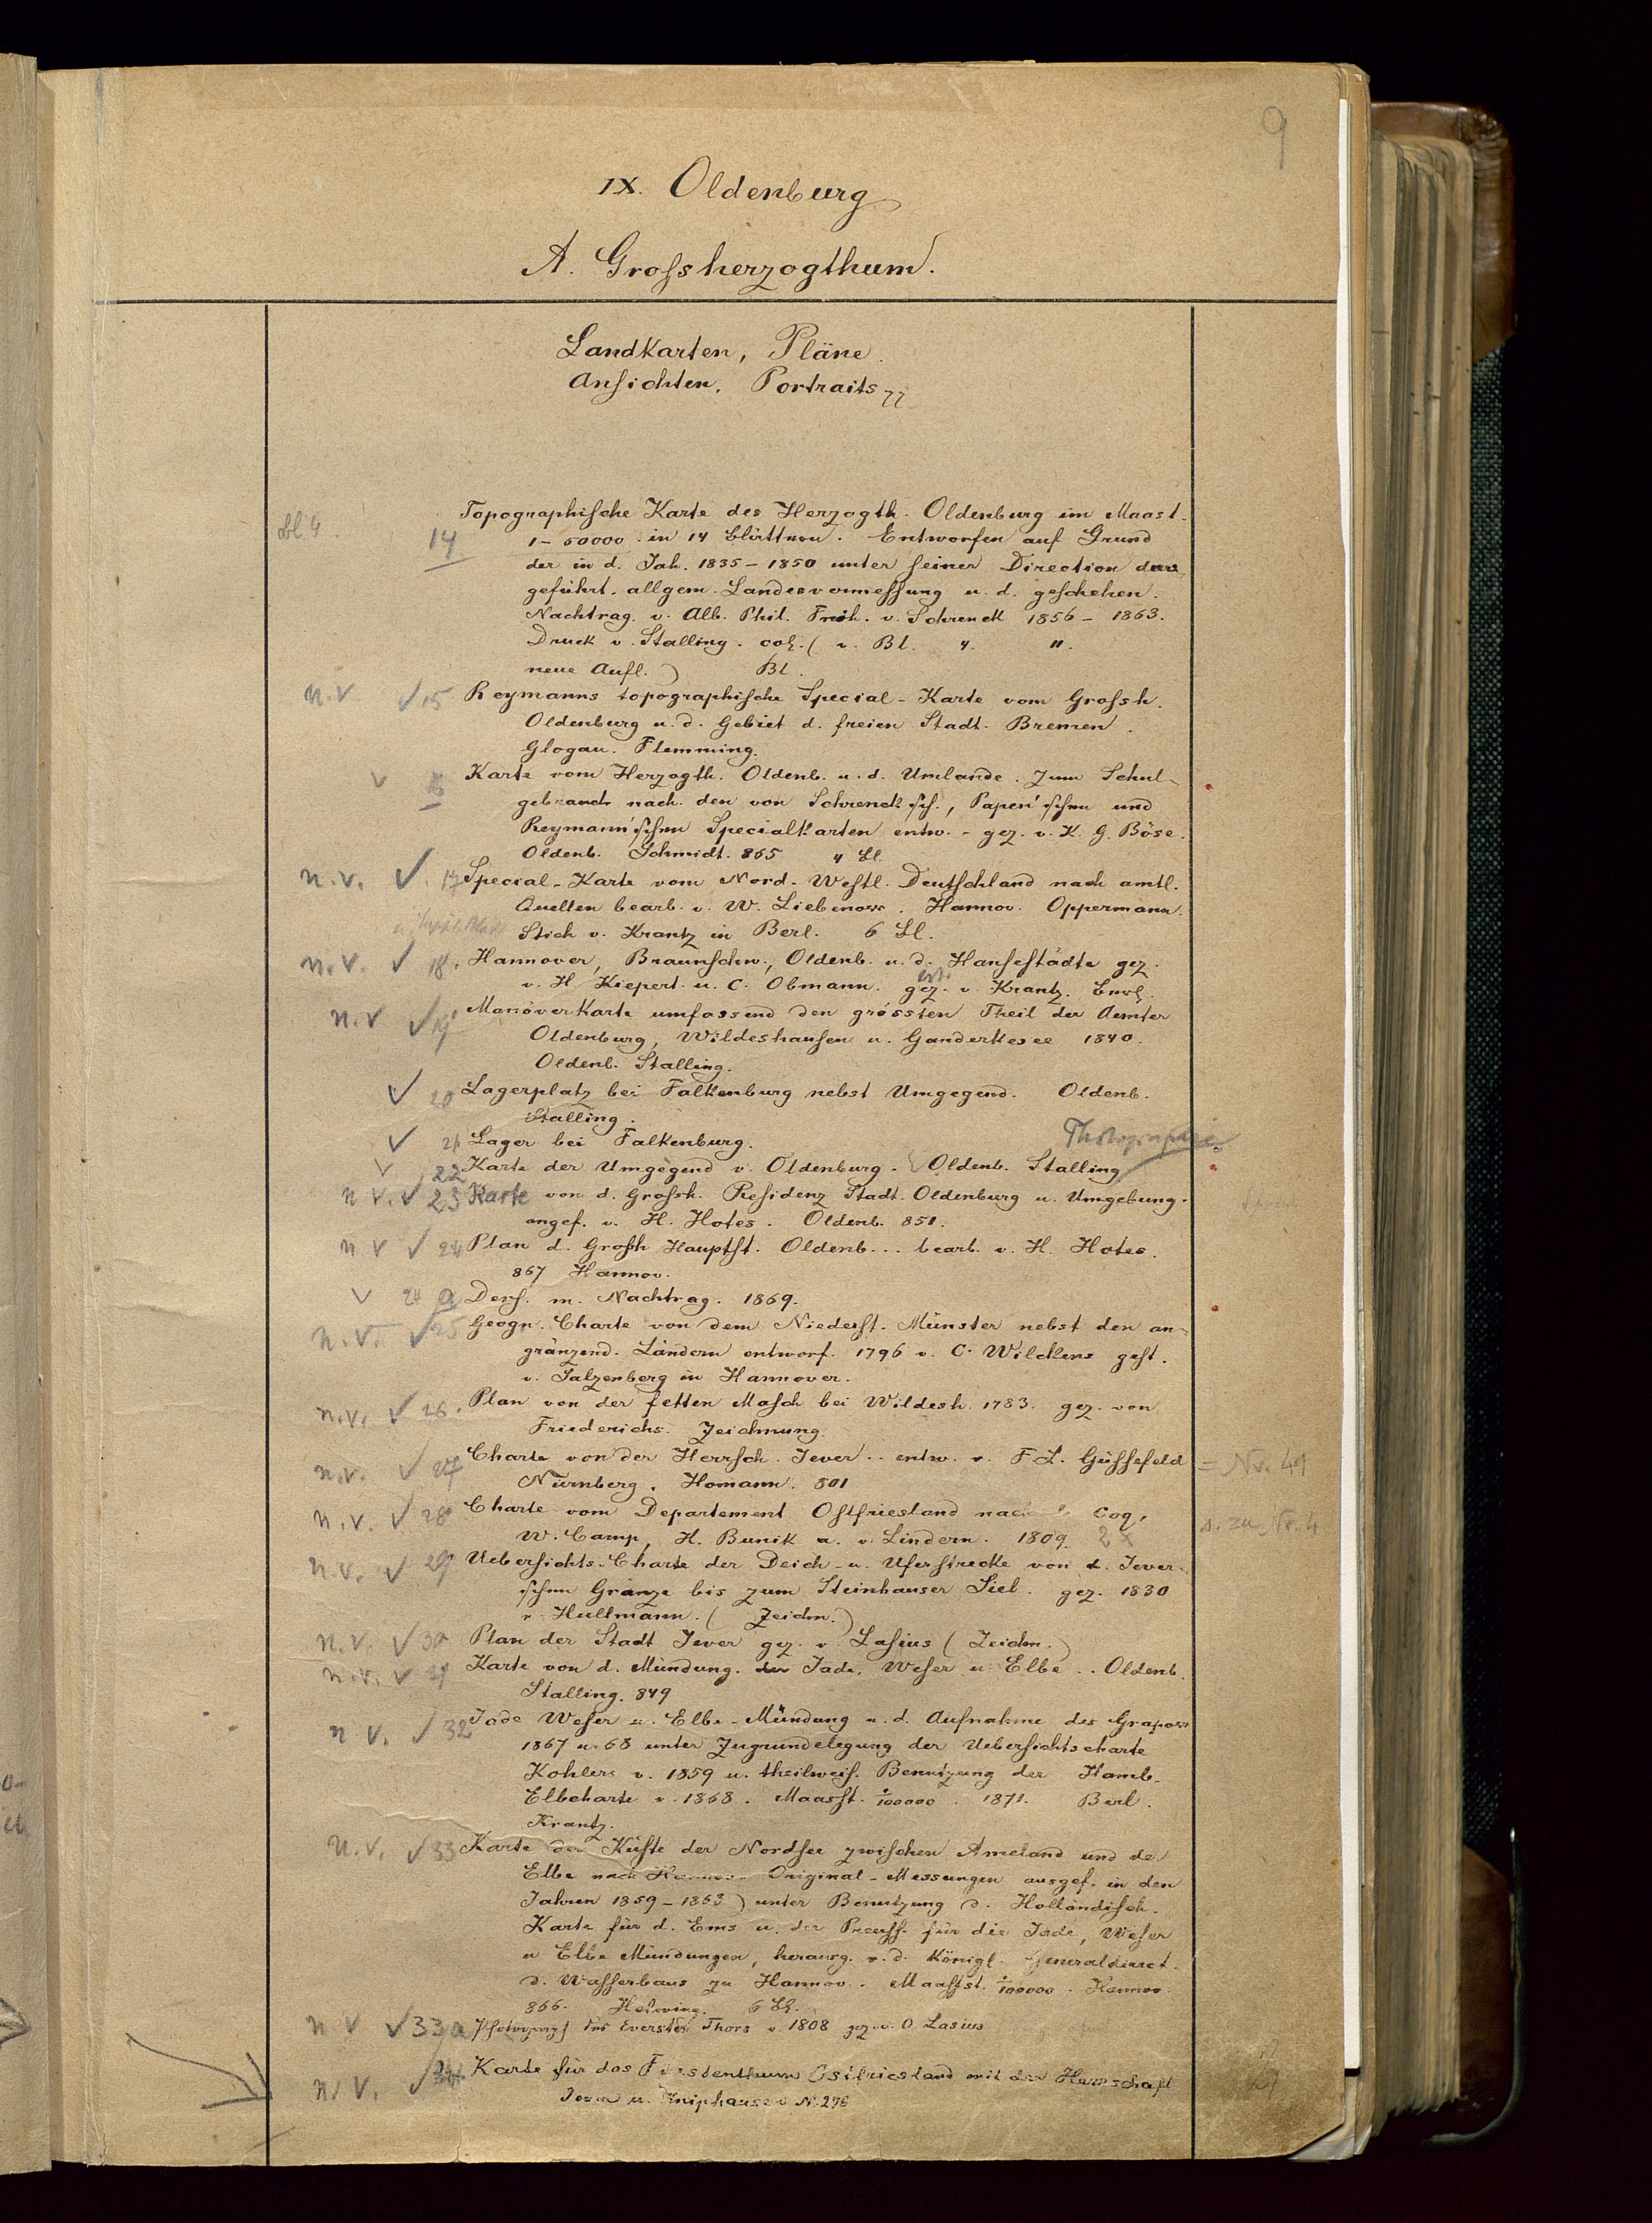 9
IX. Oldenburg
A. Grossherzogthum.
Landkarten, Pläne.
Ansichten, Portraits
Bl. 4. 14 Topographische Karte des Herzogth. Oldenburg im Maast.
1 - 50000 in 14 Blättern. Entworfen auf Grund
der in d. Jah. 1835 - 1850 unter seiner Direction durc
geführt. allgem. Landesvermessung u. d. geschehen.
Nachtrag. v. Alb. Phil. Freih. v. Schrenck 1856 - 1863.
Druck v. Stalling. col. ( v. Bl. 4. 11.
neue Aufl. ) Bl.
n. v ✓ 15 Reymanns topographische Special-Karte vom Grossh.
Oldenburg u. d. Gebiet d. freien Stadt. Bremen.
Glogau. Flemming.
✓ 16 Karte vom Herzogth. Oldenb. u. d. Umlande. Zum Schul-
gebrauch nach den von Schrenck'sch., Papen'schen und
Reymann'schen Specialkarten entw. - gez. v. K. G. Böse.
Oldenb. Schmidt. 865 4 Bl.
n. v. ✓ 17 Special-Karte vom Nord-Westl. Deutschland nach amtl.
Quellen bearb. v. W. Liebenow. Hannov. Oppermann.
Stich v. Krantz in Berl. 6 Bl.
n. v. ✓ 18. Hannover, Braunschw., Oldenb. u. d. Hansestädte gez.
v. H. Kiepert. u. C. Obmann. gez. v. Krantz.
n. v ✓ 19 Manöverkarte umfassend den grössten Theil der Aemter
Oldenburg, Wildeshausen u. Ganderkesee 1840.
Oldenb. Stalling.
✓ 20 Lagerplatz bei Falkenburg nebst Umgegend. Oldenb.
Stalling.
✓ 21 Lager bei Falkenburg. Photographie
✓ 22 Karte der Umgegend v. Oldenburg. Oldenb. Stalling
n v. ✓ 23 Karte von d. Grossh. Residenz Stadt. Oldenburg u. Umgebung.
angef. v. H. Hotes. Oldenb. 851.
n v ✓ 24 Plan d. Grossh Hauptst. Oldenb... bearb. v. H. Hotes.
867 Hannov.
✓ 24 a Ders. m. Nachtrag. 1869.
n. v. ✓ 25 Geogr. Charte von dem Niederst. Münster nebst den an-
gränzend. Ländern entworf. 1796 v. C. Wilckens gest.
v. Salzenberg in Hannover.
n. v. ✓ 26. Plan von der fetten Masch bei Wildesh. 1783. gez. von
Friederichs. Zeichnung.
n. v. ✓ 27 Charte von der Herrsch. Jever.. entw. v. F. L. Güssefeld = Nr. 49
Nürnberg. Homann. 801
n. v. ✓ 28 Charte vom Departement Ostfriesland nach Coq, s. zu Nr. 4
W. Camp, H. Bunik u. v. Lindern. 1809. 2 x
n. v. ✓ 29 Uebersichts-Charte der Deich- u. Uferstrecke von d. Jever-
schen Granze bis zum Steinhauser Siel. gez. 1830
v. Hullmann. ( Zeichn. )
n. v. ✓ 30 Plan der Stadt Jever gez. v. Lasius ( Zeichn. )
n. v. ✓ 31 Karte von d. Mündung. der Jade, Weser u. Elbe.. Oldenb.
Stalling. 849
n v. ✓ 32 Jade Weser u. Elbe-Mündung n. d. Aufnahme des Grapow
1867 u. 68 unter Zugrundelegung der Uebersichtscharte
Kohlers v. 1859 u. theilweis. Benutzung der Hamb.
Elbcharte v. 1868. Maasst. 1/100000. 1871. Berl.
Krantz.
n. v. ✓ 33 Karte der Küste der Nordsee zwischen Ameland und de
Elbe nach Original-Messungen ausgef. in den
Jahren 1859 - 1863 ) unter Benutzung d. Holländisch.
Karte für d. Ems u. der Preuss. für die Jade, Weser
u Elbe Mündungen, herausg. v. d. Königl. Generaldirect.
d. Wasserbaus zu Hannov. Maasst. 1/100000. Hannov
866. Helwing. 6 Bl.
n v ✓ 33 a Photograph des Eversten Thors v. 1808 gez. v. O Lasius
n. v. ✓ 34 Karte für das Fürstenthum Ostfriesland mit der Herrschaft
Jever u. Kniphausen N. 276